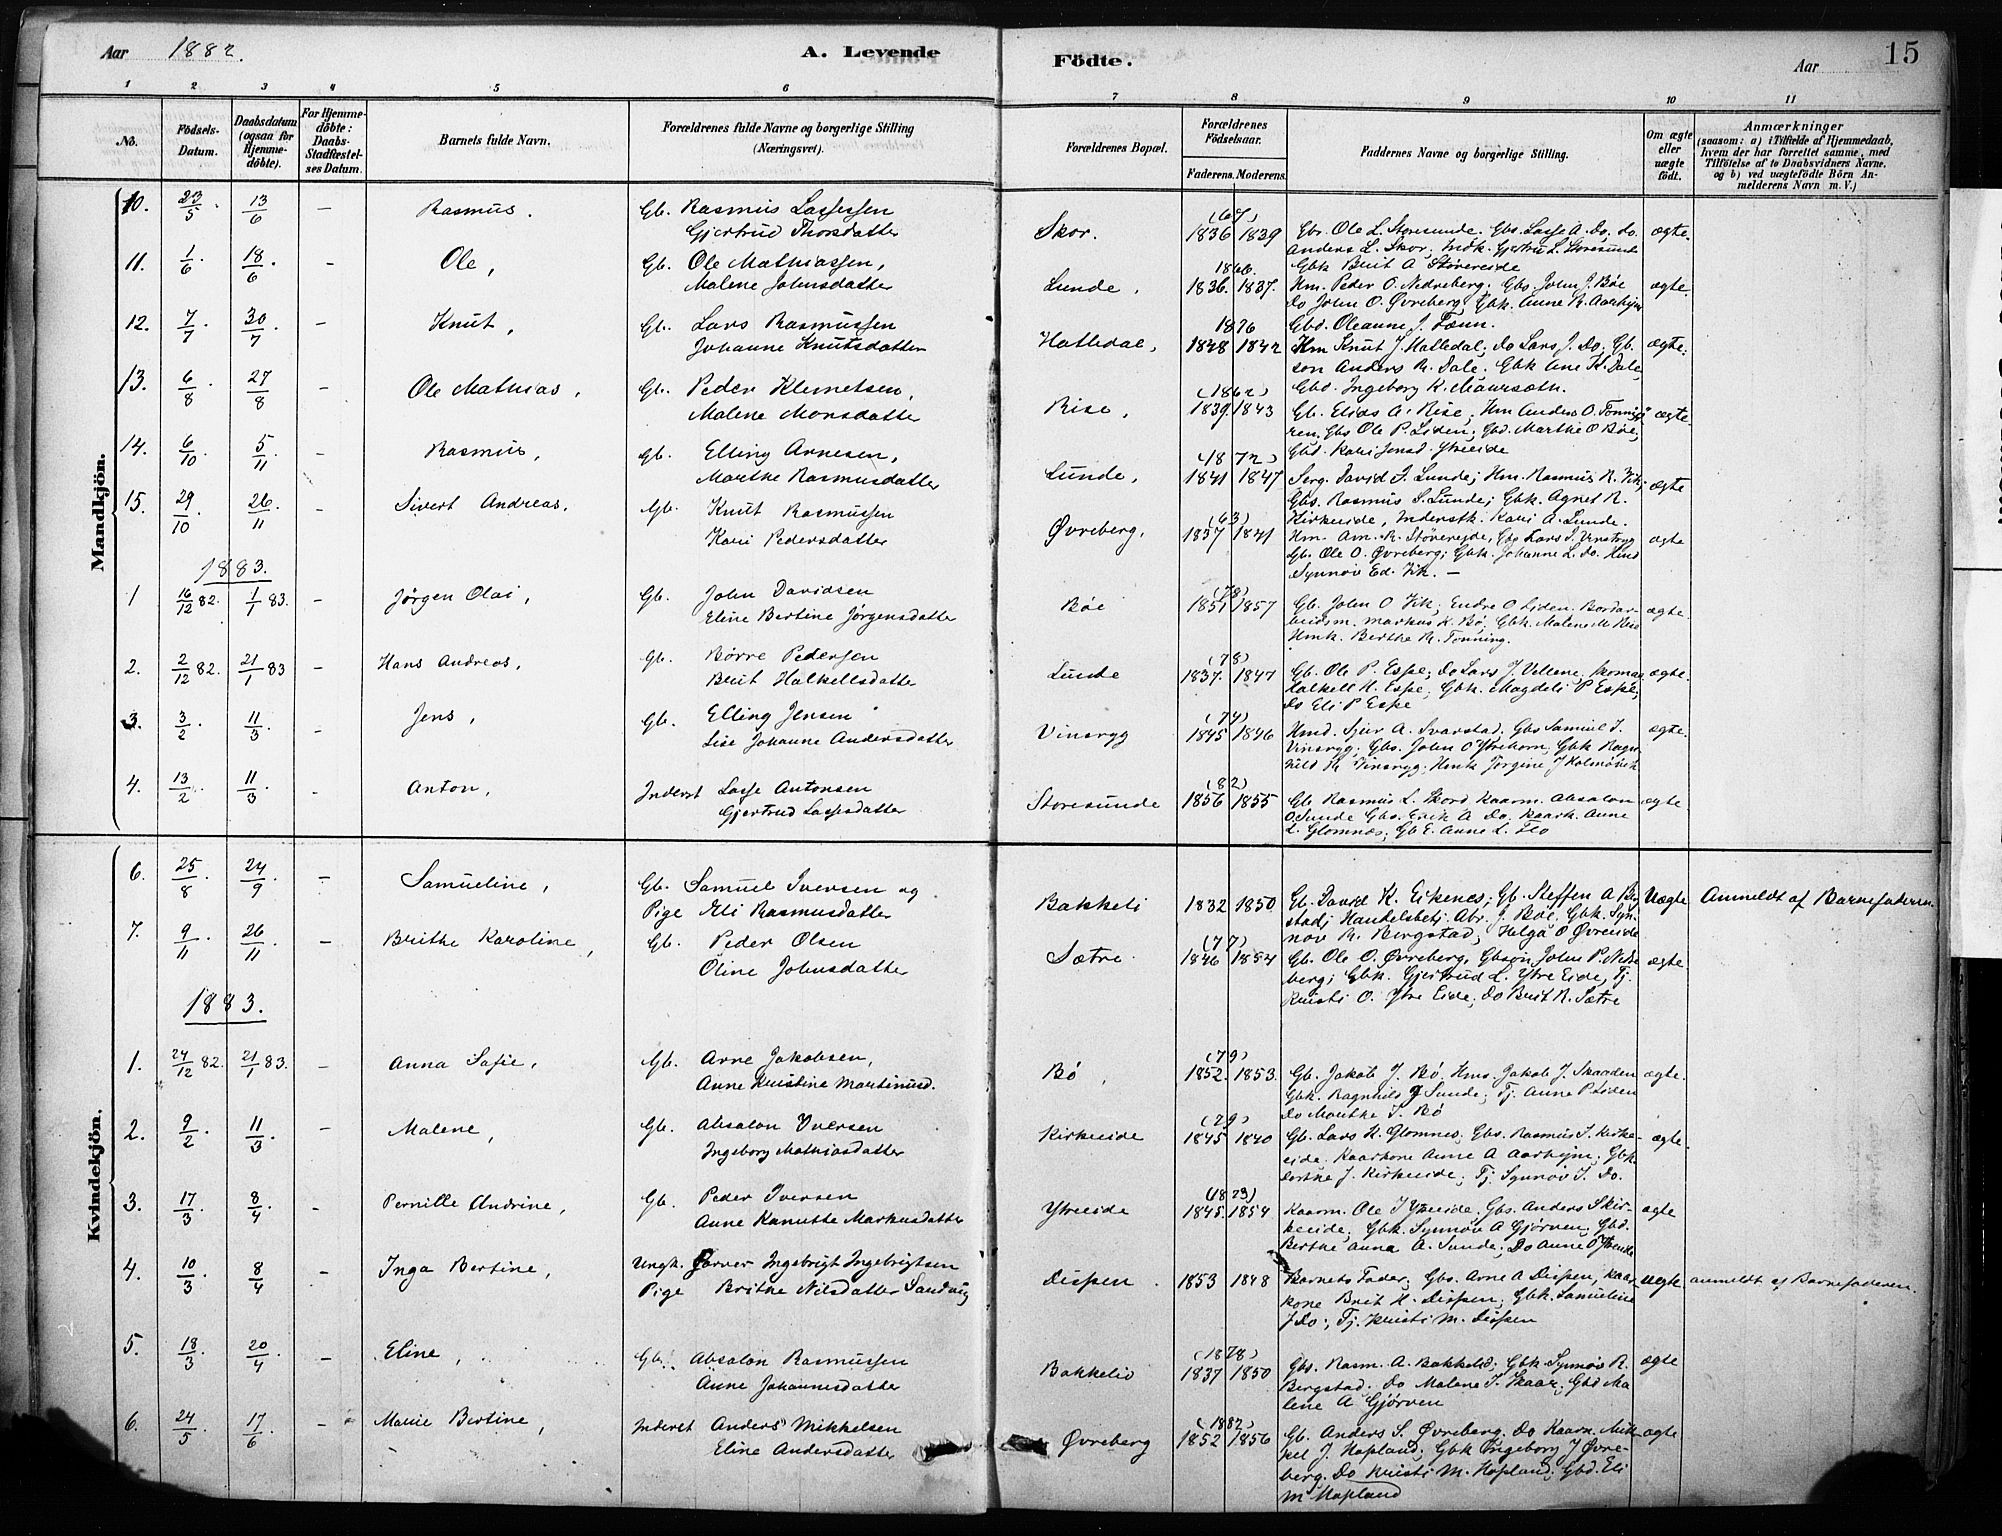 Aar 1882.
A. Levende Födte.
Aar 15
1 2 3 4 5 6 7 8 9 10 11
No.
Födsels-Datum.
Daabsdatum (ogsaa for Hjemme-döbte).
For Hjemme-döbte: Daabs-Stadfæstel-ses Datum.
Barnets fulde Navn.
Forældrenes fulde Navne og borgerlige Stilling (Næringsvei).
Forældrenes Bopæl.
Forældrenes Födselsaar.
Faderens. Moderens.
Faddernes Navne og borgerlige Stilling.
Om ægte eller uægte födt.
Anmærkninger
(saasom: a) i Tilfælde af Hjemmedaab, hvem der har forrettet samme, med Tilföielse af to Daabsvidners Navne, og b) ved uægtefödte Börn Anmelderens Navn m. V.)
Mandkjön.
10. 23/5. 13/6 – Rasmus. Gb. Rasmus Lassessen
Gjertrud Thorsdatter
Skor. (67) 1836 1839 Gbr. Ole L. Storesunde. Gbs. Lasse A. do. do.
Anders L. Skor. Indk. Gjertru L. Storesund
Gbk Brit A Støvereide
ægte.
11. 1/6. 18/6. – Ole, Gb. Ole Mathiassen,
Malene Johnsdatter
Lunde, 1866. 1836. 1837. Hm. Peder O. Nedreberg. Gbs. John J. Bøe
do John O. Øvreberg, Gbk. Anne R. Aarhejm
Gbd. Oleanne J. Tonn.
ægte.
12. 7/7. 30/7 – Knut, Gb. Lars Rasmussen
Johanne Knutsdatter
Hatledal, 1876 1848 1842 Hm Knut J. Hatledal; do Lars J. Do. Gb.
son Anders R. Dale. Gbk Ane K. Dale,
Gbd. Ingeborg K. Maursæth.
ægte.
13. 6/8 27/8 – Ole Mathias, Gb. Peder Klemetsen,
Malene Monsdatter
Rise, (1862) 1839. 1843 Gb. Elias A. Rise, Hm Anders O. Tonning
ren, Gbs Ole P. Liden; Gbd. Marthe O Bøe,
Gbd. Kari Jensd. Ytreeide
ægte
14. 6/10 5/11 – Rasmus, Gb. Elling Arnesen,
Marthe Rasmusdatter
Lunde, (1872) 1841 1847 Serg. David I. Lunde; Hm. Rasmus R. Vik,
Gbs. Rasmus S. Lunde; Gbk. Agnet R.
Kirkeeide, Inderstk. Kari A. Lunde.
ægte
15. 29/10. 26/11 – Sivert Andreas, Gb. Knut Rasmussen
Kari Pedersdatter
Øvreberg, (63) 1837 1841 Hm. Am. R. Støvereide, Gbs Lars S. Vinsryg
Gb. Ole O. Øvreberg; Gbk. Johanne L. do. Hmd
Synnøv Ed. Vik. –
ægte
1883.
1 16/12 82. 1/1 83. – Jørgen Olai, Gb. John Davidsen
Eline Bertine Jørgensdatter
Bøe (78) 1851 1857 Gb. John O Vik, Endre O Liden. Bordar-
beidsm. Markus K. Bø, Gbk. Malene M Rise
Hmk. Berthe R. Tonning.
ægte.
2. 2/12 82. 21/1 83 – Hans Andreas, Gb. Børre Pedersen
Brit Halkellsdatter
Lunde (78) 1837. 1847 Gb. Ole P. Espe; do Lars J. Vellene, skomag
Halkell H. Espe; Gbk. Magdeli P Espe,
Do Eli P Espe
ægte.
3. 3/2. 11/3 – Jens, Gb. Elling Jensen
Lise Johanne Andersdatter
Vinsryg (74) 1845 1846 Hmd. Sjur A. Svarstad; Gbs Samuel I.
Vinsryg, Gbs. John O Ytrehorn, Gbk Ragn-
hild R. Vinsryg; Hmk Jørgine J Holmøvik
ægte.
4. 13/2. 11/3. – Anton, Inderst Lasse Antonsen
Gjertrud Lassesdatter
Storesunde (82) 1856 1855 Gb Rasmus L. Skord Kaarm. Absalon
O Sunde Gbs. Erik A do. Kaark. Anne
L. Glomnæs, Gb E. Anne L. Flo
ægte
Kvindekjön.
6. 25/8 24/9 – Samueline, Gb. Samuel Iversen og
Pige Eli Rasmusdatter
Bakkeli 1832 1850 Gb. David K. Eikenæs; Gb. Steffen A Berg
stad; Handelsbetj. Abr. J. Bøe. Gbk. Syn-
nøv R. Bergstad, Helga O Øvreeide
Uægte Anmeldt af Barnefaderen.
7. 9/11 26/11 – Brithe Karoline, Gb. Peder Olsen
Oline Johnsdatter
Sætre (77) 1846 1854 Gb. Ole O. Øvreberg, Gbsøn John P. Nedre
berg; Gbk. Gjertrud L. Ytre Eide, Tj.
Kristi O. Ytre Eide, do Brit R. Sætre
ægte.
1883.
1. 24/12 82. 21/1 83. – Anna Sofie, Gb. Arne Jakobsen,
Anne Kristine Martinusd.
Bø, (79) 1852. 1853. Gb. Jakob J. Bø. Hms. Jakob J. Skarden
Gbk. Ragnhild J Sunde; Tj. Anne P Liden
Do Marthe I. Bø
ægte.
2. 9/2. 11/3. – Malene, Gb. Absalon Iversen
Ingeborg Mathiasdatter
Kirkeeide (79) 1845 1840 Gb. Lars K. Glomnes; Gbs. Rasmus I. Kirke-
eide. Kaarkone Anne A Aarhejm; Gbk.
Dorthe J. Kirkeeide; Tj. Synnøv I. Do.
ægte.
3. 17/3. 8/4. – Pernille Andrine, Gb. Peder Iversen
Anne Kanutte Markusdatter
Ytreeide (1873) 1845. 1854 Kaarm. Ole I Ytreeide. Gbs. Anders S Kir-
keeide, Gbk. Synnøv A Gjørven, Gbd.
Berthe Anna A. Sunde. Do Anne O Ytreeide
ægte
4. 10/3 8/4 – Inga Bertine, Ungk. Garver Ingebrigt Ingebrigtsen
Pige Brithe Nilsdatter Sandvig
Dispen. 1853 1848 Barnets Fader; Gbs. Arne A Dispen, Kaar-
kone Brit H. Dispen; Gbk. Samueline
J do; Tj. Kristi M. Dispen
uægte. anmeldt af Barnefaderen.
5. 18/3. 20/4. – Eline, Gb. Absalon Rasmussen
Anne Johannesdatter
Bakkelid (1878) 1837 1850 Gbs. Rasm. A. Bakkelid; Gbk. Synnøv R.
Bergstad; do Malene I. Skaar; Gbd Ma-
lene A Gjørven
ægte
6. 24/5 17/6. – Marie Bertine, Inderst Anders Mikkelsen
Eline Andersdatter
Øvreberg (1882) 1852 1856 Gb. Anders S. Øvreberg. do Kaarm. Mik-
kel J. Hopland; Gbk Ingeborg J Øvre-
berg. Do Kristi M. Hopland; Gbd. Eli
M Hopland
ægte